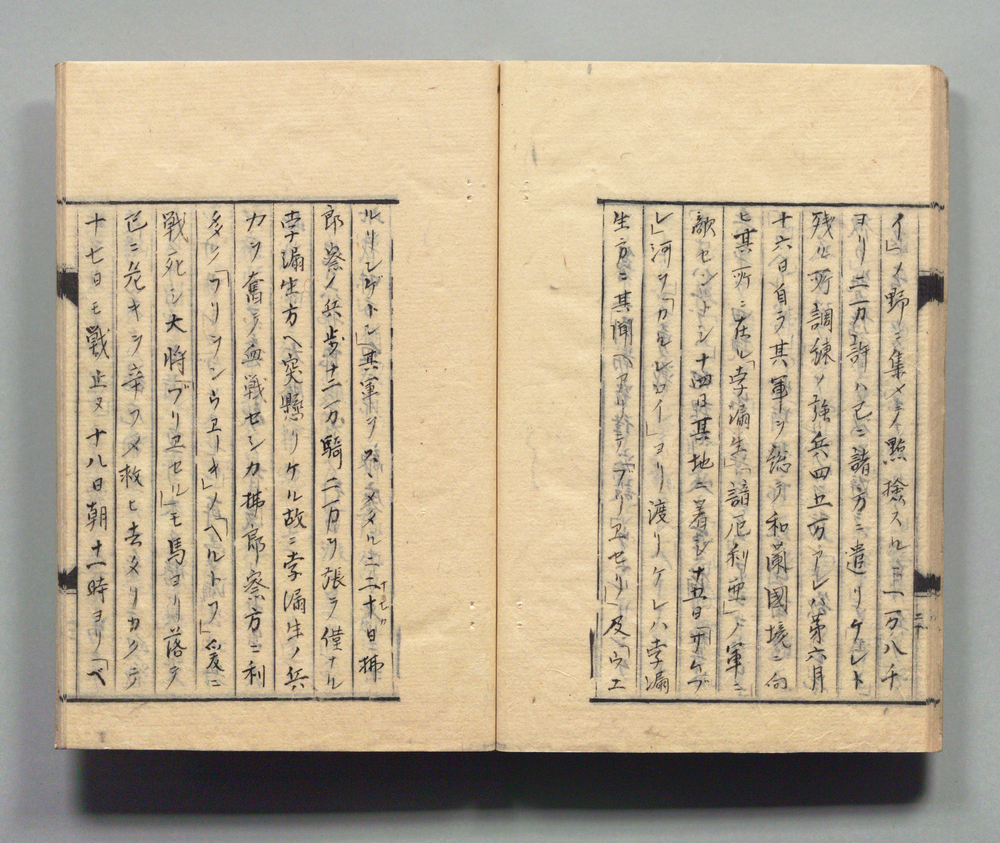 イ」ノ野ニ集メテ點撿スルニ一万八千
ヨリ二万許ハ已ニ諸方ニ遣リケレト
残ル所調練ノ強兵四五万アレハ第六月
十六日自ラ其軍ヲ総テ和蘭國境ニ向
ヒ其所ニ在ル「孛漏生」「諳厄利亜」ノ軍ニ
敵セントシ十四日其地ニ着シ十五日「サムブ
レ」河ヲ「カルレロイ」ヨリ渡リケレハ孛漏
生方ニ其聞ヘアリテ「ブリユセリ」及「ウエ
ルリントン」其軍ヲスヽメタル二十七日拂
郎察ノ兵歩十二万騎二万ヲ張ラ僅ナル
孛漏生方ヘ突懸リケル故ニ孛漏生ノ兵
力ヲ奮テ血戦セシカ拂郎察方ニ利
多ク「ブリンシウエーキ」ノ「ヘルトフ」爰ニ
戦死シ大将「ブリユセル」モ馬ヨリ落テ
已ニ危キヲ辛フメ救ヒ去タリカクテ
十七日モ戦止ヌ十八日朝十一時ヨリ「ベ